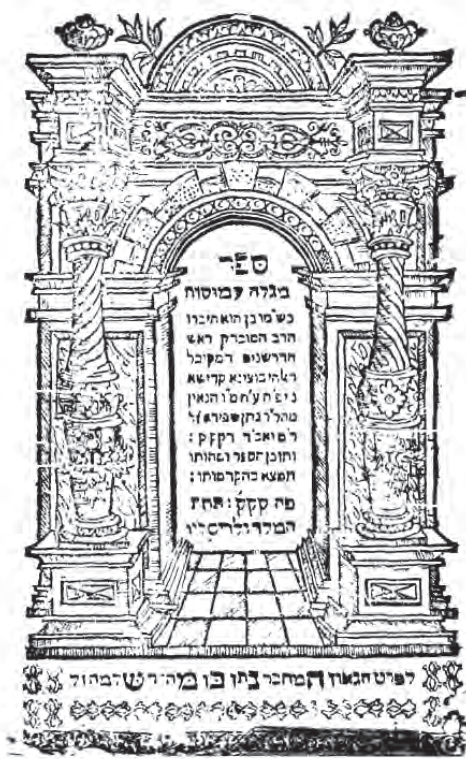 ספר
מגלה עמוקות
כש״מו כן הוא חיברו
הרב המובהק ראש
הדרשנים המקובל
האלהי בוצינא קדישא
הגאון
מהר״ר נתן שפירא ז״ל
דקק״ק:
ותוכן הספר ומהותו
תמצא בהקדמותו:
פה קקק: תחת
המלך ולדיסליו
לפרט הגאון המחבר נתן בן